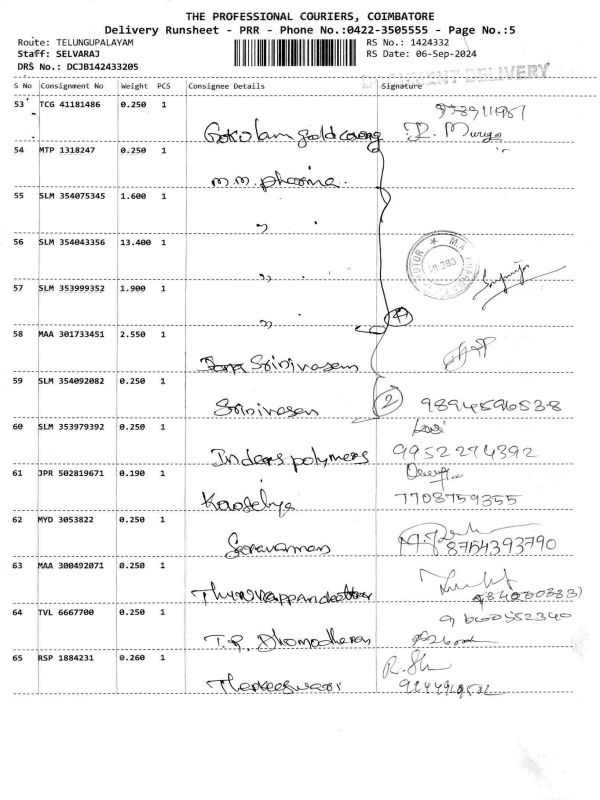 THE PROFESSIONAL COURIERS, COIMBATORE
Delivery Runsheet - PRR - Phone No.:0422-3505555 - Page No.:5
Route: TELUNGUPALAYAM RS No.: 1424332
Staff: SELVARAJ RS Date: 06-Sep-2024
DRS No.: DCJB142433205 DELIVERY
S No Consignment No Weight PCS Consignee Details Signature
53 TCG 41181486 0.250 1
Gokulam gold covering P. Muruga
54 MTP 1318247 0.250 1
M.M. pharma.
55 SLM 354075345 1.600 1
"
56 SLM 354043356 13.400 1
"
57 SLM 353999352 1.900 1
" 4
58 MAA 301733451 2.550 1
Srinivasan
59 SLM 354092082 0.250 1
Srinivasan 2 9894596538
60 SLM 353979392 0.250 1
Inders polymers 9952274392
61 JPR 502819671 0.190 1
7708759355
62 MYD 3053822 0.250 1
Saravanan 8754393790
63 MAA 300492071 0.250 1
64 TVL 6667700 0.250 1
T.P. Dhamodharan
65 RSP 1884231 0.260 1